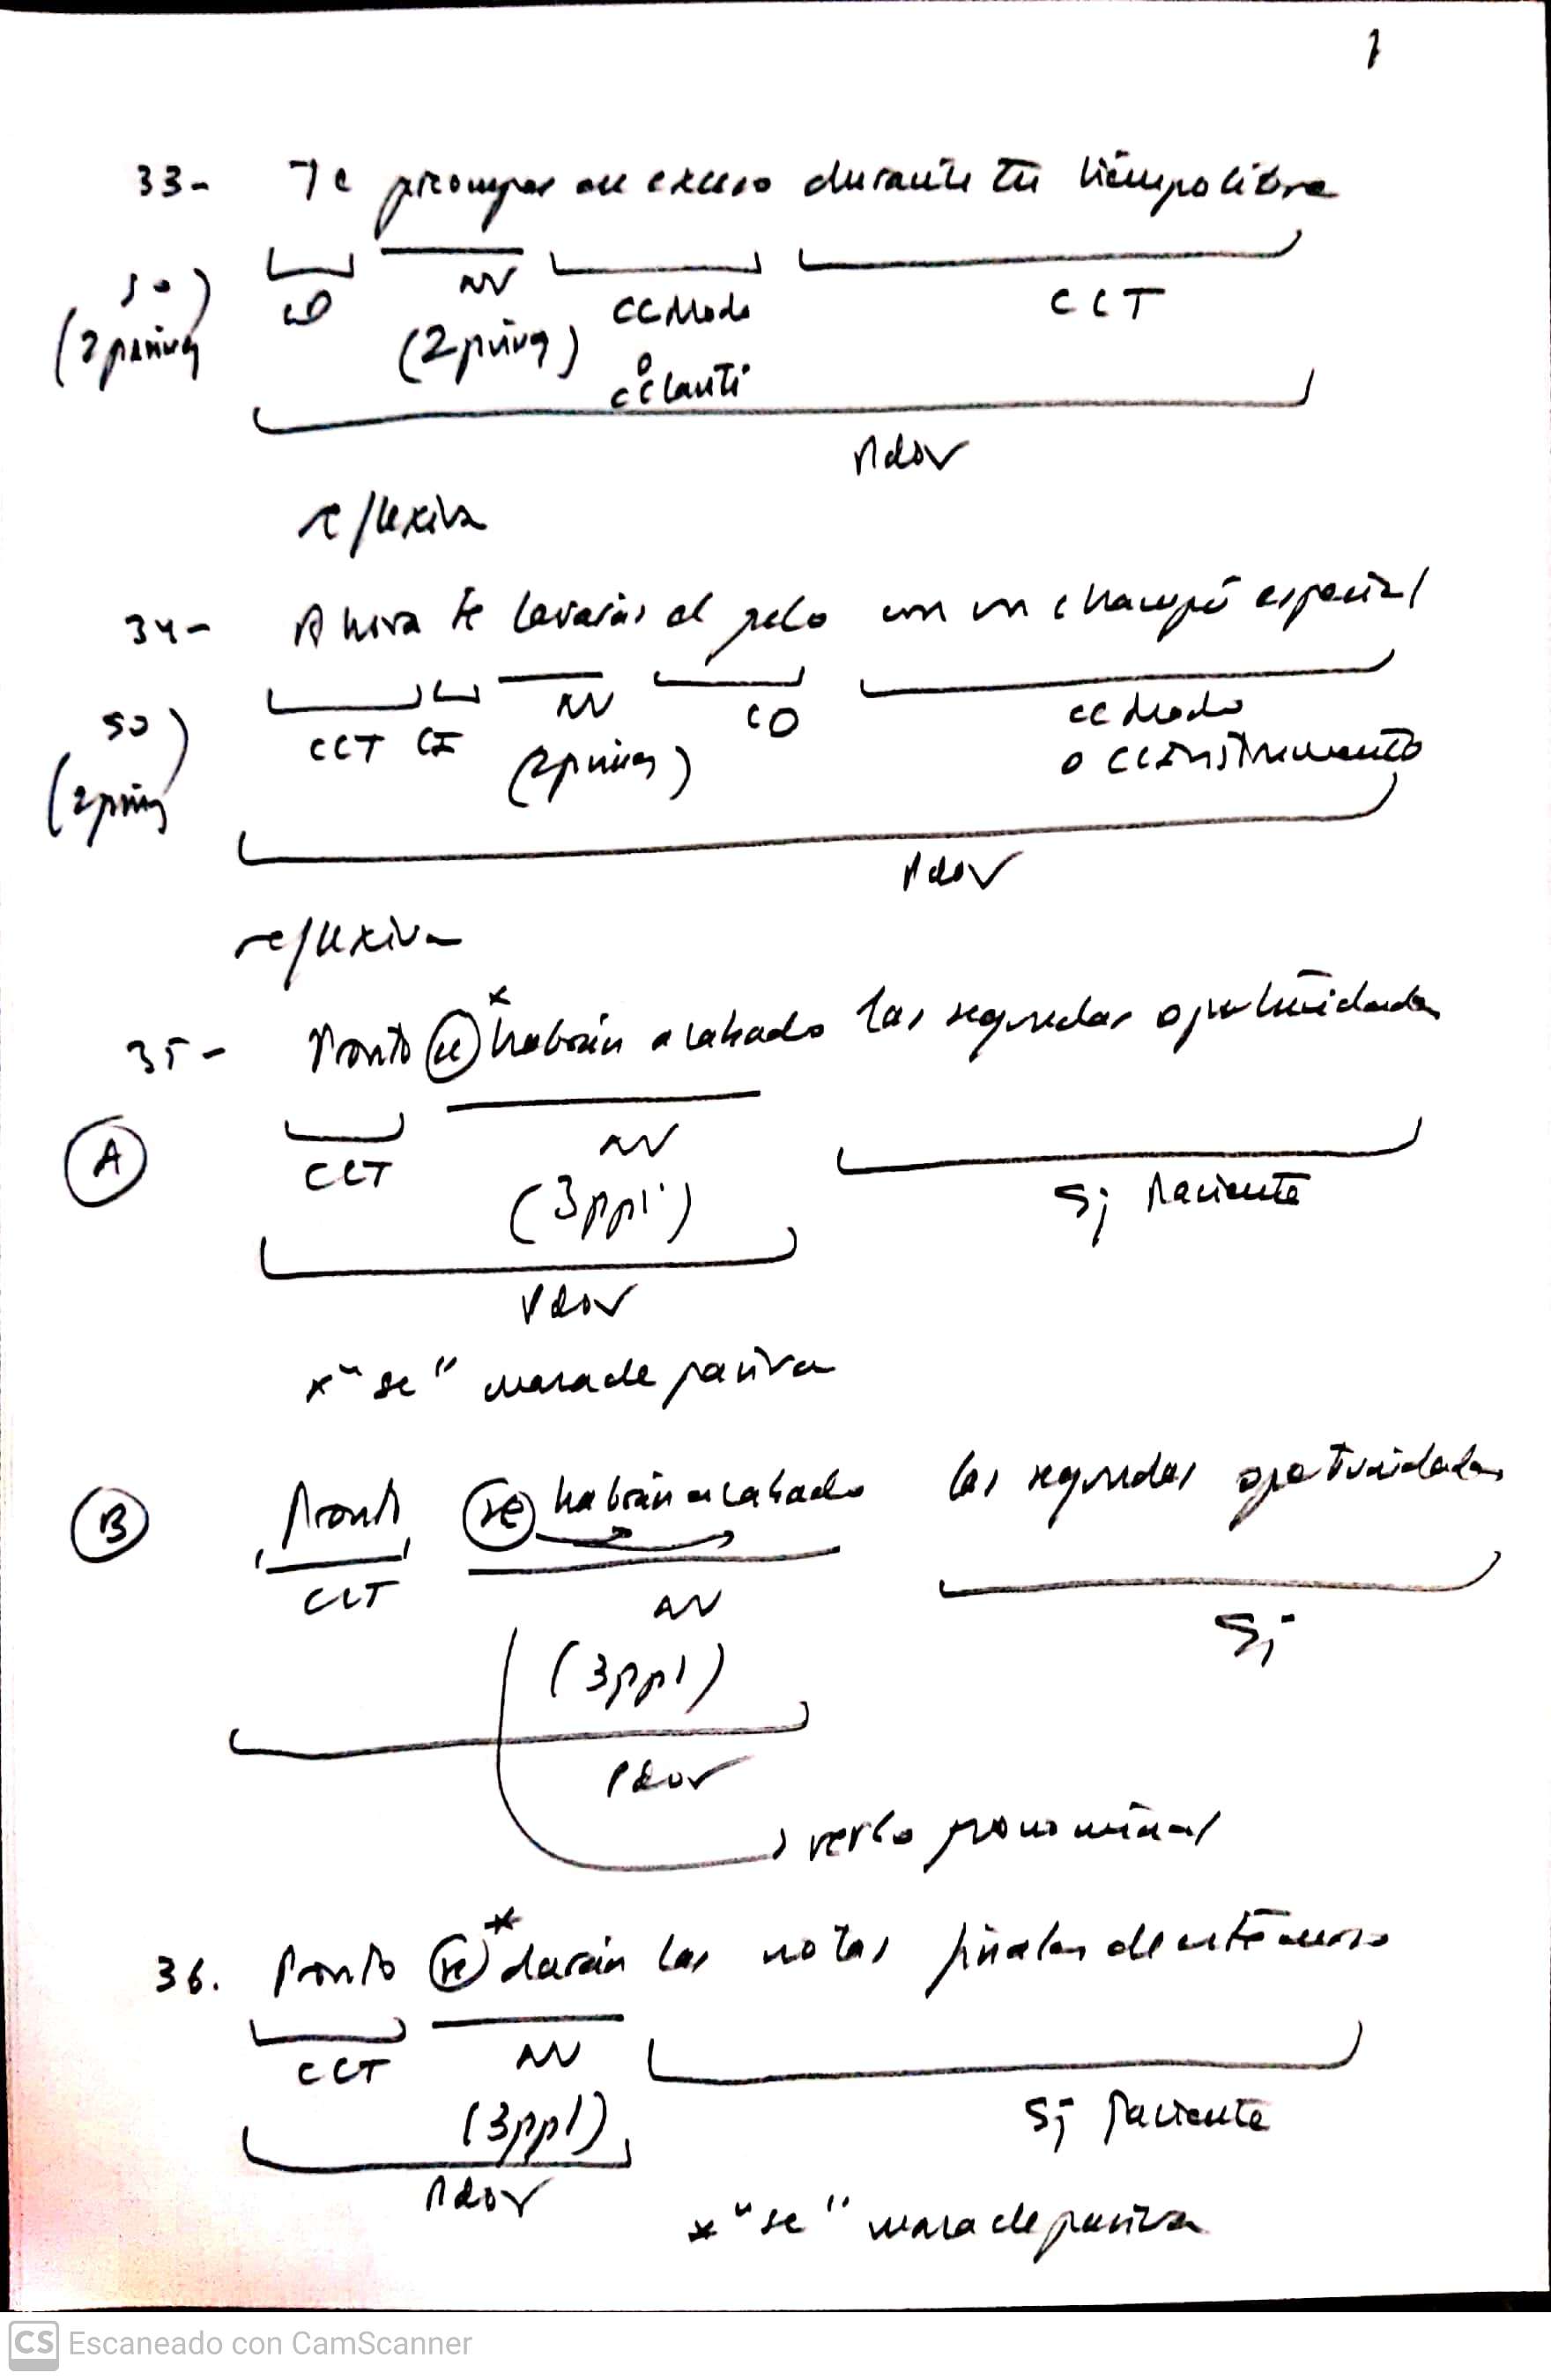 1
33- Te preocupas en exceso durante tu tiempo libre
SO) CD NV CCModo CCT
(2psing (2psing) o
CCCanti
PdoV
reflexiva
34- Ahora te lavarás el pelo con un champú especial
SO) CCT CI NV CD CCModo
(2psing (2psing) o CCInstrumento
PdoV
reflexiva
35- Pronto se* habrán acabado las segundas oportunidades
A CCT NV
(3ppl) Sj Paciente
PdoV
*"se" marca de pasiva
B Pronto se habrán acabado las segundas oportunidades
CCT NV Sj
(3ppl)
PdoV
verbo pronominal
36. Pronto se* darán las notas finales de este curso
CCT NV
(3ppl) Sj Paciente
PdoV
*"se" marca de pasiva
CS Escaneado con CamScanner